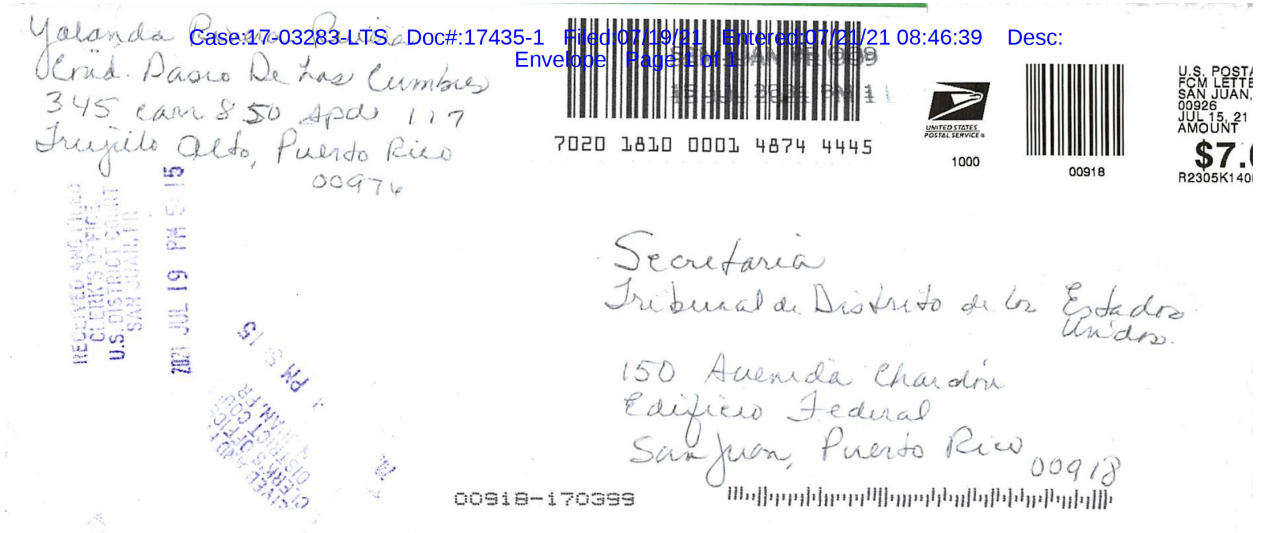 Yolanda
Case:17-03283-LTS Doc#:17435-1 Filed:07/19/21 Entered:07/21/21 08:46:39 Desc:
Envelope Page 1 of 1
De Las Cumbres
345 carr 850 Apdo 117
Trujillo Alto, Puerto Rico
00976
7020 1810 0001 4874 4445
UNITED STATES
POSTAL SERVICE
1000
00918
U.S. POSTA
FCM LETTE
SAN JUAN,
00926
JUL 15, 21
AMOUNT
$7.
R2305K140
RECEIVED AND FILED
CLERK'S OFFICE
U.S. DISTRICT COURT
SAN JUAN, PR
2021 JUL 19 PM 5:15
PM 5:15
CLERK'S OFFIC
DISTRICT COU
Secretaria
Tribunal de Distrito de los Estados
Unidos.
150 Avenida Chardón
Edificio Federal
San Juan, Puerto Rico
00918
00918-170399